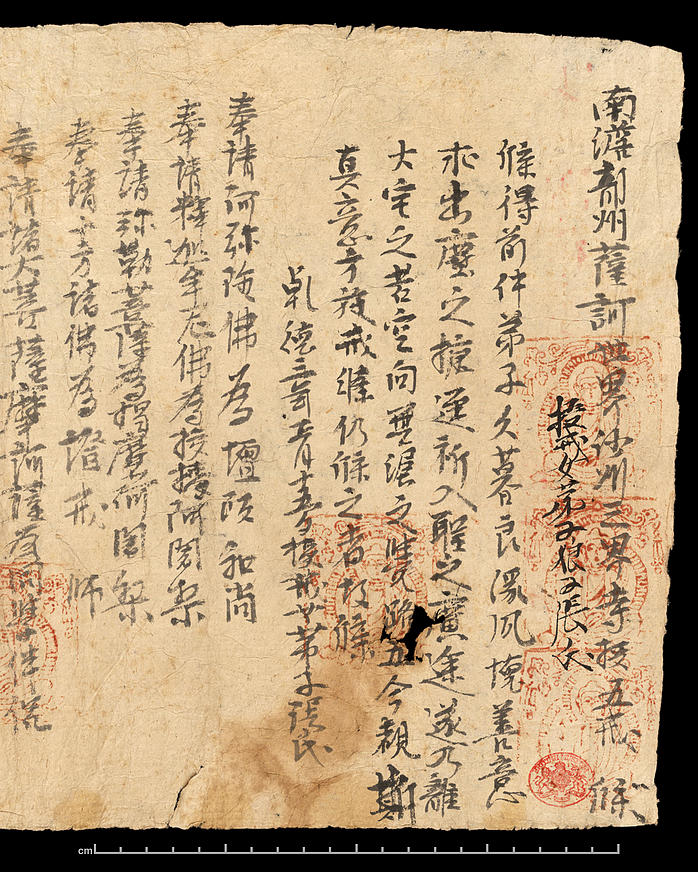 南瞻部州薩訶世界沙州三界寺授五戒牒
授戒女弟子張氏
牒得前件弟子久慕良緣夙懷善意
求出塵之捷逕祈入聖之廣途遂乃離
火宅之苦空向無漏之覺路五今覩斯
真意方施戒條仍牒之者故牒
乾德三年正月十五日授戒女弟子張氏
奉請阿弥陀佛為壇頭和尚
奉請釋迦牟尼佛為羯磨阿闍梨
奉請弥勒菩薩為羯磨阿闍梨
奉請十方諸佛為證戒師
奉請諸大菩薩摩訶薩為同學伴侶